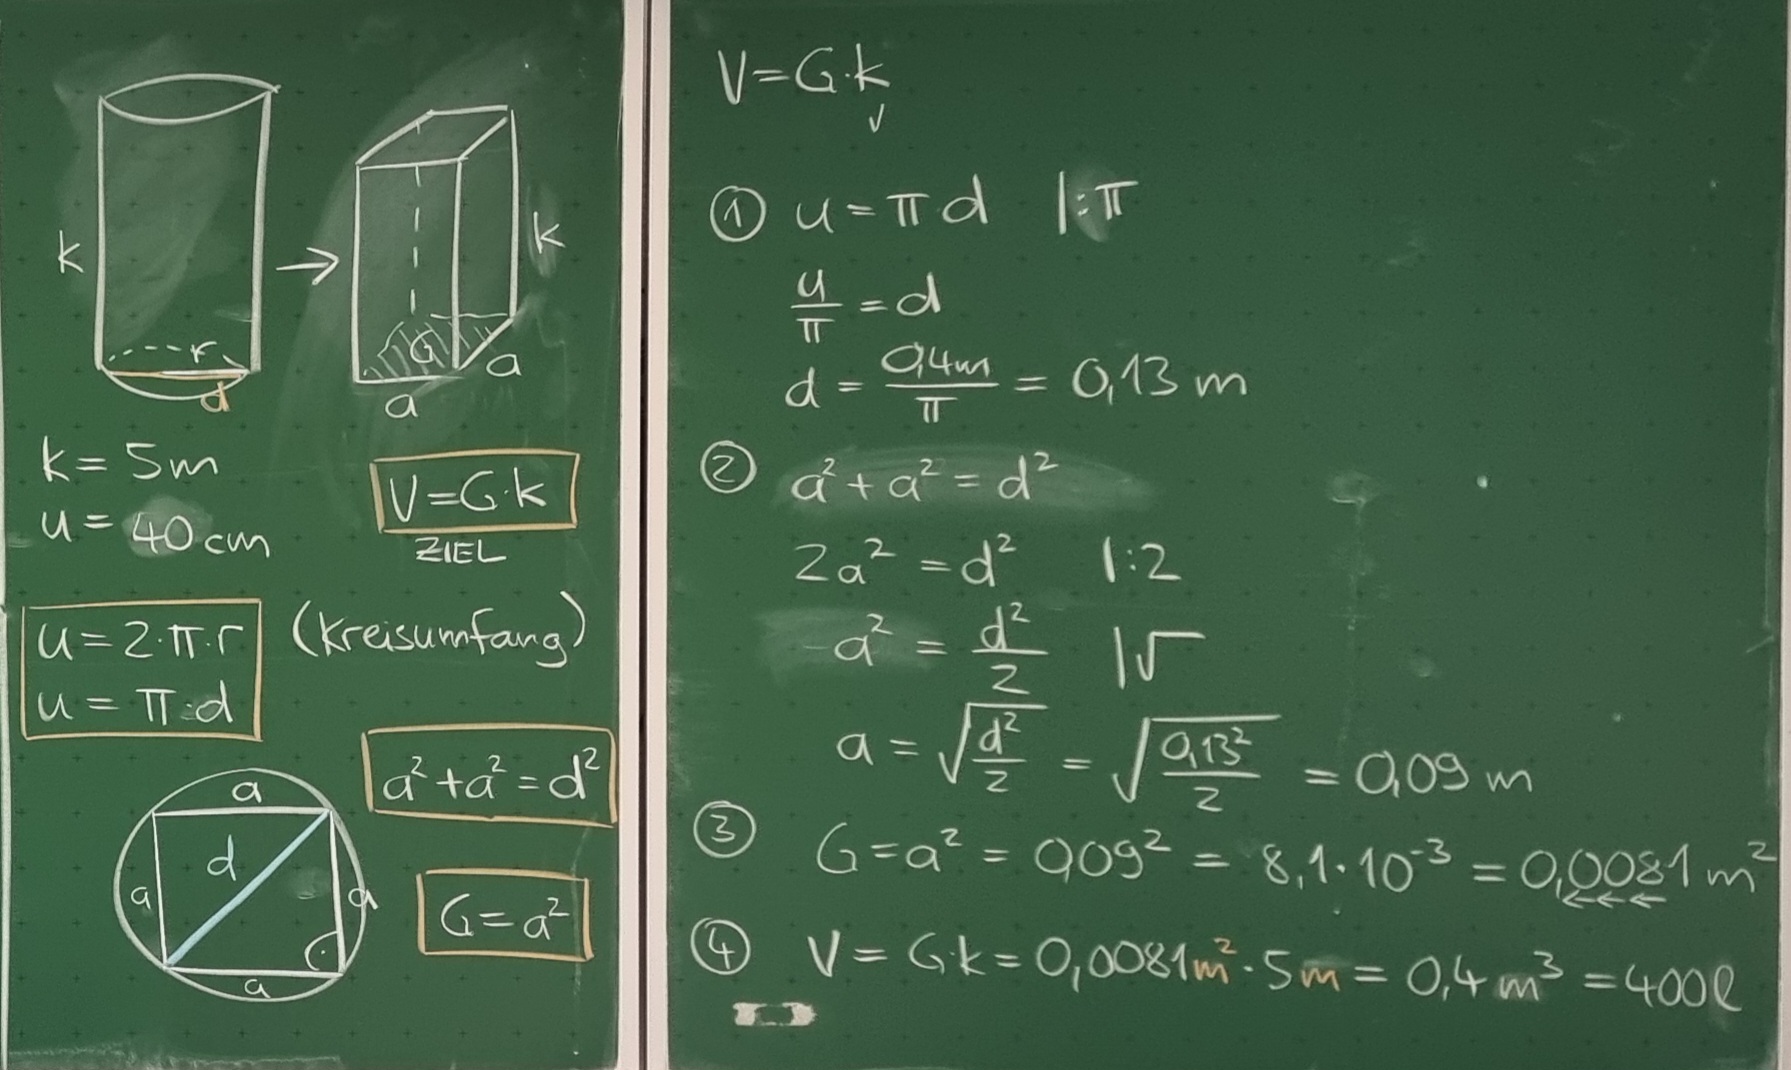 k
k
r
d
G
a
a
k = 5m
u = 40 cm
V = G·k
ZIEL
u = 2·π·r (Kreisumfang)
u = π·d
a² + a² = d²
a
d
a
a
a
G = a²
V = G·k
① u = π d |:π
u/π = d
d = 0,4m/π = 0,13 m
② a² + a² = d²
2a² = d² |:2
a² = d²/2 |√
a = √(d²/2) = √(0,13²/2) = 0,09 m
③ G = a² = 0,09² = 8,1·10⁻³ = 0,0081 m²
④ V = G·k = 0,0081m²·5m = 0,4 m³ = 400l